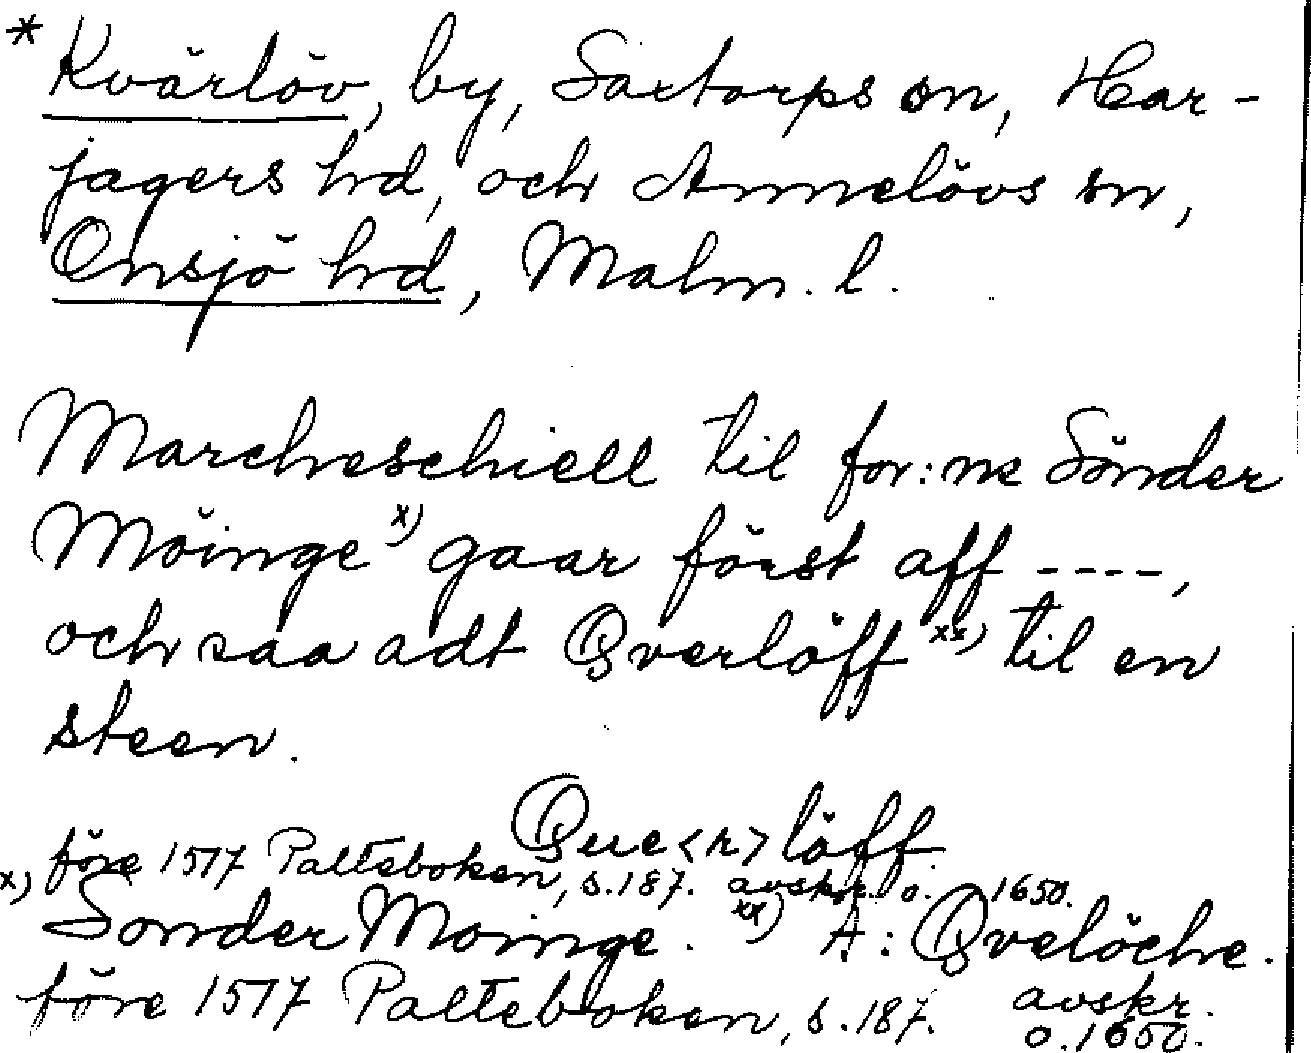 * Kvärlöv, by, Saxtorps sn, Har-
jagers hd, och Annelövs sn,
Onsjö hd, Malm. l.
Marcheschiell til for:ne Sönder
Möinge x) gaar först aff ----,
och saa adt Qverlöff xx) til en
steen.
Que<r>löff.
före 1517 Palteboken, s.187. avskr. o. 1650.
x) Sonder Moinge. xx) A: Qvelöche.
före 1517 Palteboken, s.187. avskr.
o.1650.